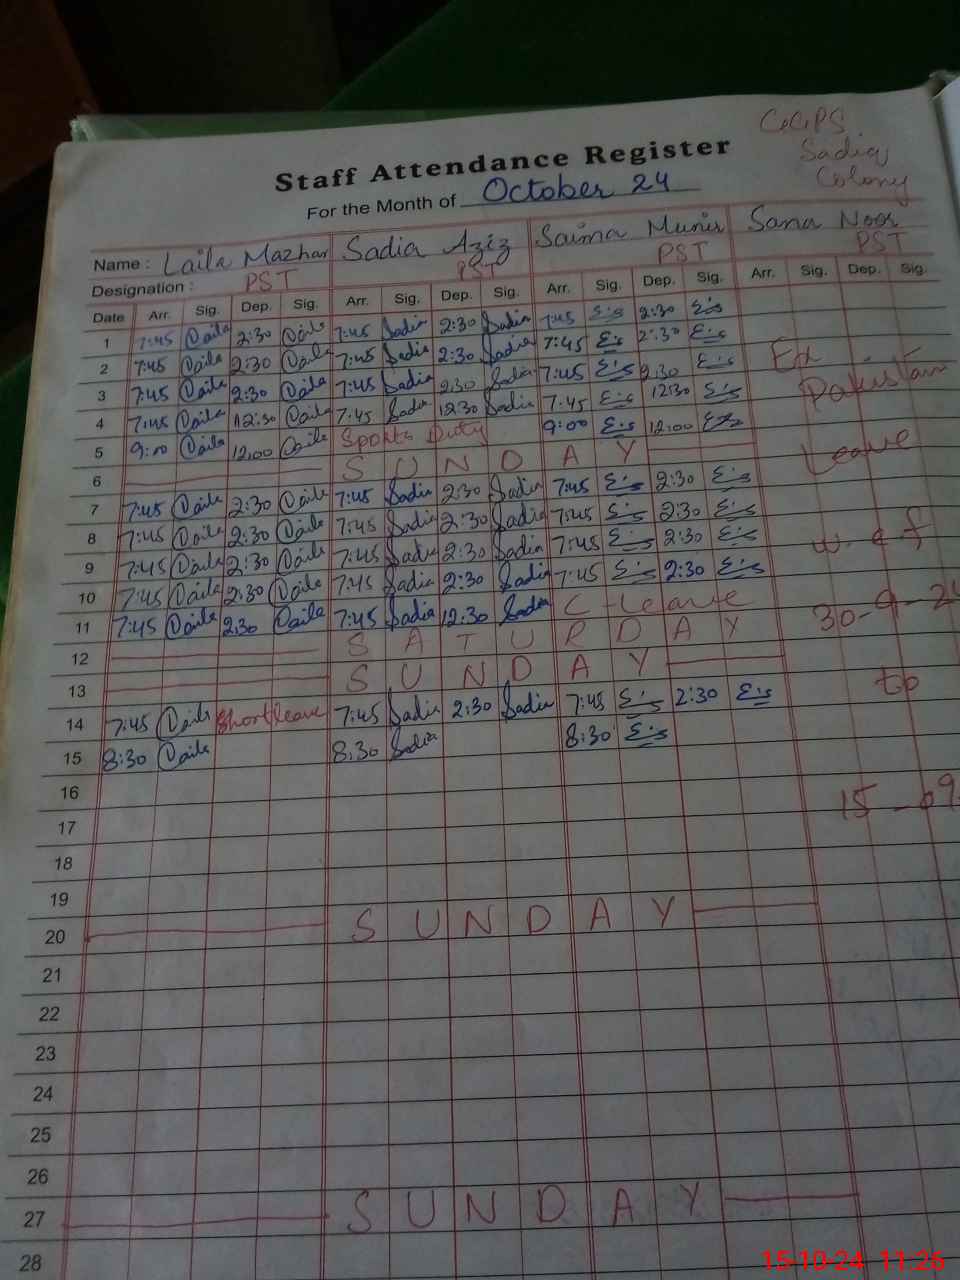 GGPS
Sadiq
Colony
Staff Attendance Register
For the Month of October 24
Name : Laila Mazhar Sadia Aziz Saima Munir Sana Noor
Designation : PST PST PST PST
Date Arr. Sig. Dep. Sig. Arr. Sig. Dep. Sig. Arr. Sig. Dep. Sig. Arr. Sig. Dep. Sig.
1 7:45 Laila 2:30 Laila 7:45 Sadia 2:30 Sadia 7:45 2:30
2 7:45 Laila 2:30 Laila 7:45 Sadia 2:30 Sadia 7:45 2:30
3 7:45 Laila 2:30 Laila 7:45 Sadia 2:30 Sadia 7:45 2:30 Ex
4 7:45 Laila 12:30 Laila 7:45 Sadia 12:30 Sadia 7:45 12:30 Pakistan
5 9:00 Laila 12:00 Laila Sports Duty 9:00 12:00
6 SUNDAY Leave
7 7:45 Laila 2:30 Laila 7:45 Sadia 2:30 Sadia 7:45 2:30
8 7:45 Laila 2:30 Laila 7:45 Sadia 2:30 Sadia 7:45 2:30
9 7:45 Laila 2:30 Laila 7:45 Sadia 2:30 Sadia 7:45 2:30 w.e.f
10 7:45 Laila 2:30 Laila 7:45 Sadia 2:30 Sadia 7:45 2:30
11 7:45 Laila 2:30 Laila 7:45 Sadia 12:30 Sadia C-leave 30-9-24
12 SATURDAY
13 SUNDAY to
14 7:45 Laila Short leave 7:45 Sadia 2:30 Sadia 7:45 2:30
15 8:30 Laila 8:30 Sadia 8:30
16
17 15-09
18
19
20 SUNDAY
21
22
23
24
25
26
27 SUNDAY
28
15-10-24 11:26